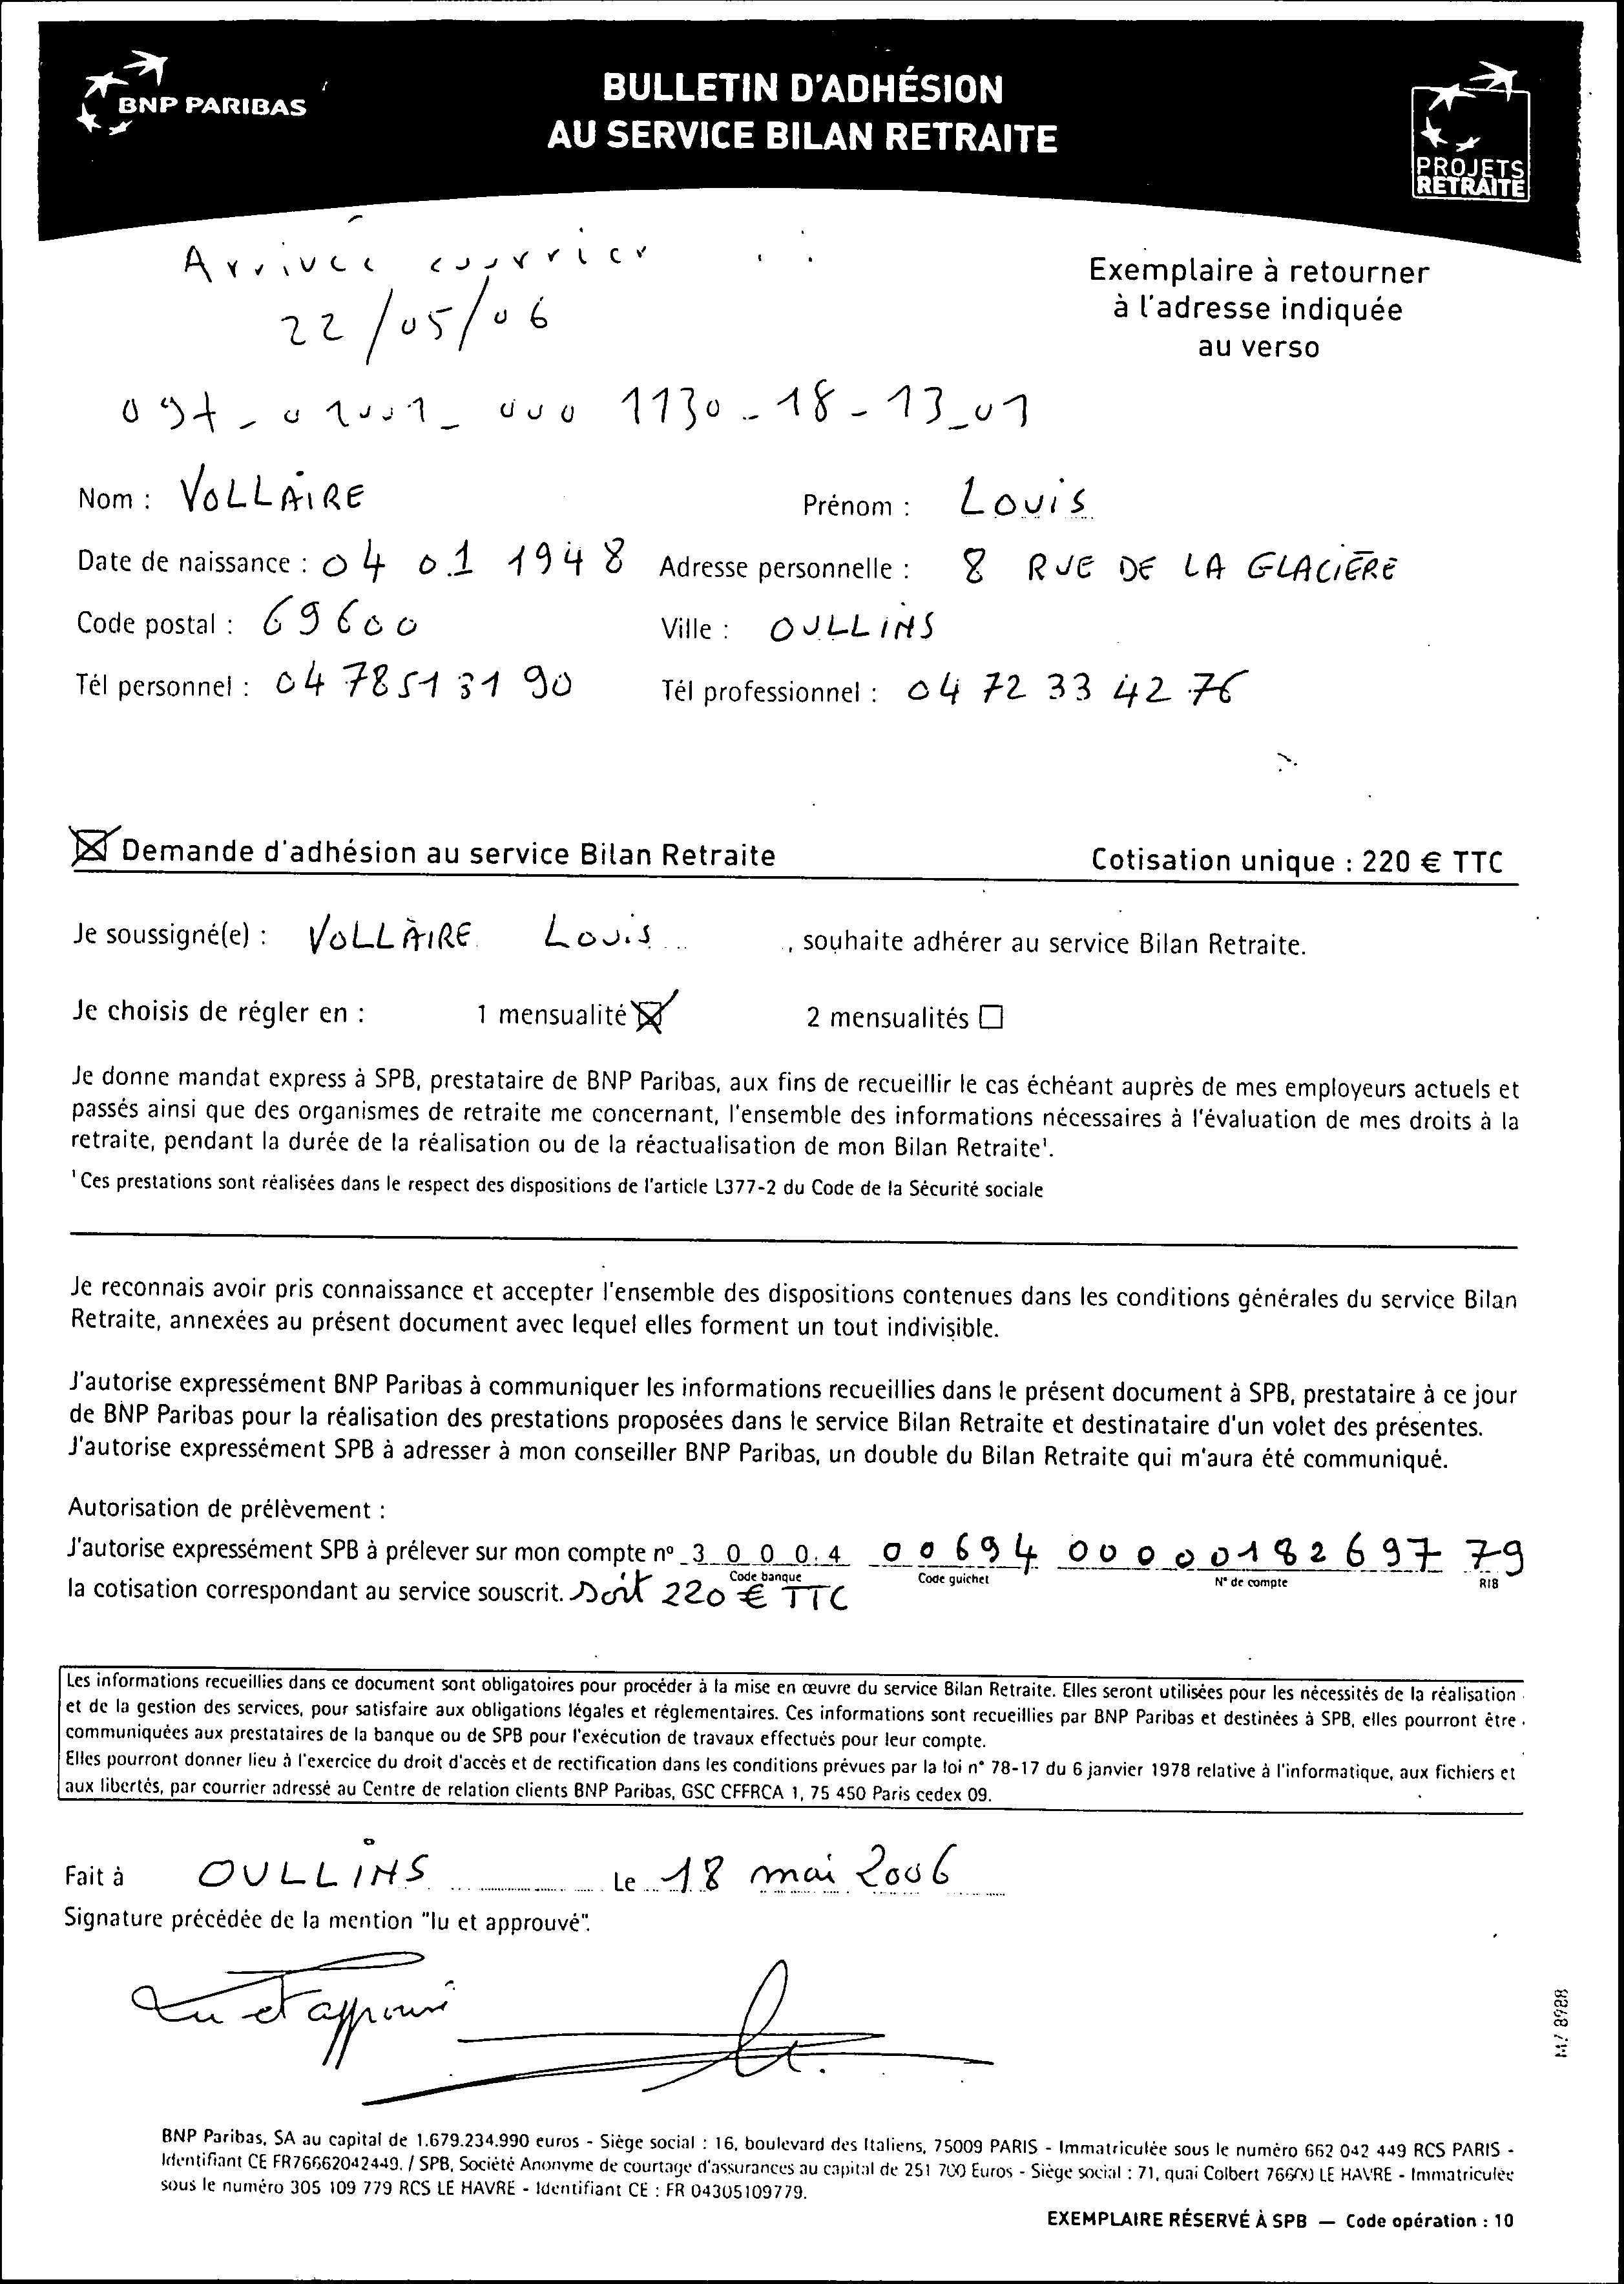 BNP PARIBAS
BULLETIN D'ADHÉSION
AU SERVICE BILAN RETRAITE
PROJETS
RETRAITE
Arrivée courrier
22/05/06
Exemplaire à retourner
à l'adresse indiquée
au verso
097_01001_000 1130_18_13_01
Nom : VOLLAIRE
Prénom : Louis
Date de naissance : 04 01 1948 Adresse personnelle : 8 RUE DE LA GLACIÈRE
Code postal : 69600 Ville : OULLINS
Tél personnel : 04 78 51 31 90 Tél professionnel : 04 72 33 42 76
Demande d'adhésion au service Bilan Retraite Cotisation unique : 220 € TTC
Je soussigné(e) : VOLLAIRE Louis , souhaite adhérer au service Bilan Retraite.
Je choisis de régler en : 1 mensualité 2 mensualités
Je donne mandat express à SPB, prestataire de BNP Paribas, aux fins de recueillir le cas échéant auprès de mes employeurs actuels et
passés ainsi que des organismes de retraite me concernant, l'ensemble des informations nécessaires à l'évaluation de mes droits à la
retraite, pendant la durée de la réalisation ou de la réactualisation de mon Bilan Retraite¹.
¹ Ces prestations sont réalisées dans le respect des dispositions de l'article L377-2 du Code de la Sécurité sociale
Je reconnais avoir pris connaissance et accepter l'ensemble des dispositions contenues dans les conditions générales du service Bilan
Retraite, annexées au présent document avec lequel elles forment un tout indivisible.
J'autorise expressément BNP Paribas à communiquer les informations recueillies dans le présent document à SPB, prestataire à ce jour
de BNP Paribas pour la réalisation des prestations proposées dans le service Bilan Retraite et destinataire d'un volet des présentes.
J'autorise expressément SPB à adresser à mon conseiller BNP Paribas, un double du Bilan Retraite qui m'aura été communiqué.
Autorisation de prélèvement :
J'autorise expressément SPB à prélever sur mon compte n° 30004 00694 00000182697 79
Code banque Code guichet N° de compte RIB
la cotisation correspondant au service souscrit. Soit 220 € TTC
Les informations recueillies dans ce document sont obligatoires pour procéder à la mise en œuvre du service Bilan Retraite. Elles seront utilisées pour les nécessités de la réalisation
et de la gestion des services, pour satisfaire aux obligations légales et réglementaires. Ces informations sont recueillies par BNP Paribas et destinées à SPB, elles pourront être
communiquées aux prestataires de la banque ou de SPB pour l'exécution de travaux effectués pour leur compte.
Elles pourront donner lieu à l'exercice du droit d'accès et de rectification dans les conditions prévues par la loi n° 78-17 du 6 janvier 1978 relative à l'informatique, aux fichiers et
aux libertés, par courrier adressé au Centre de relation clients BNP Paribas, GSC CFFRCA 1, 75 450 Paris cedex 09.
Fait à OULLINS Le 18 mai 2006
Signature précédée de la mention "lu et approuvé".
Lu et approuvé
BNP Paribas, SA au capital de 1.679.234.990 euros - Siège social : 16, boulevard des Italiens, 75009 PARIS - Immatriculée sous le numéro 662 042 449 RCS PARIS -
Identifiant CE FR76662042449. / SPB, Société Anonyme de courtage d'assurances au capital de 251 700 Euros - Siège social : 71, quai Colbert 76600 LE HAVRE - Immatriculée
sous le numéro 305 109 779 RCS LE HAVRE - Identifiant CE : FR 04305109779.
EXEMPLAIRE RÉSERVÉ À SPB — Code opération : 10